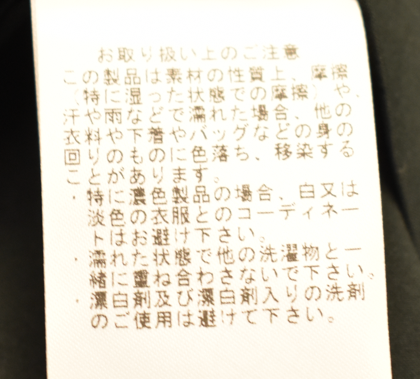 お取り扱い上のご注意
この製品は素材の性質上、摩擦
（特に湿った状態での摩擦）や、
汗や雨などで濡れた場合、他の
衣料や下着やバッグなどの身の
回りのものに色落ち、移染する
ことがあります。
・特に濃色製品の場合、白又は
淡色の衣服とのコーディネー
トはお避け下さい。
・濡れた状態で他の洗濯物と一
緒に重ね合わさないで下さい。
・漂白剤及び漂白剤入りの洗剤
のご使用は避けて下さい。